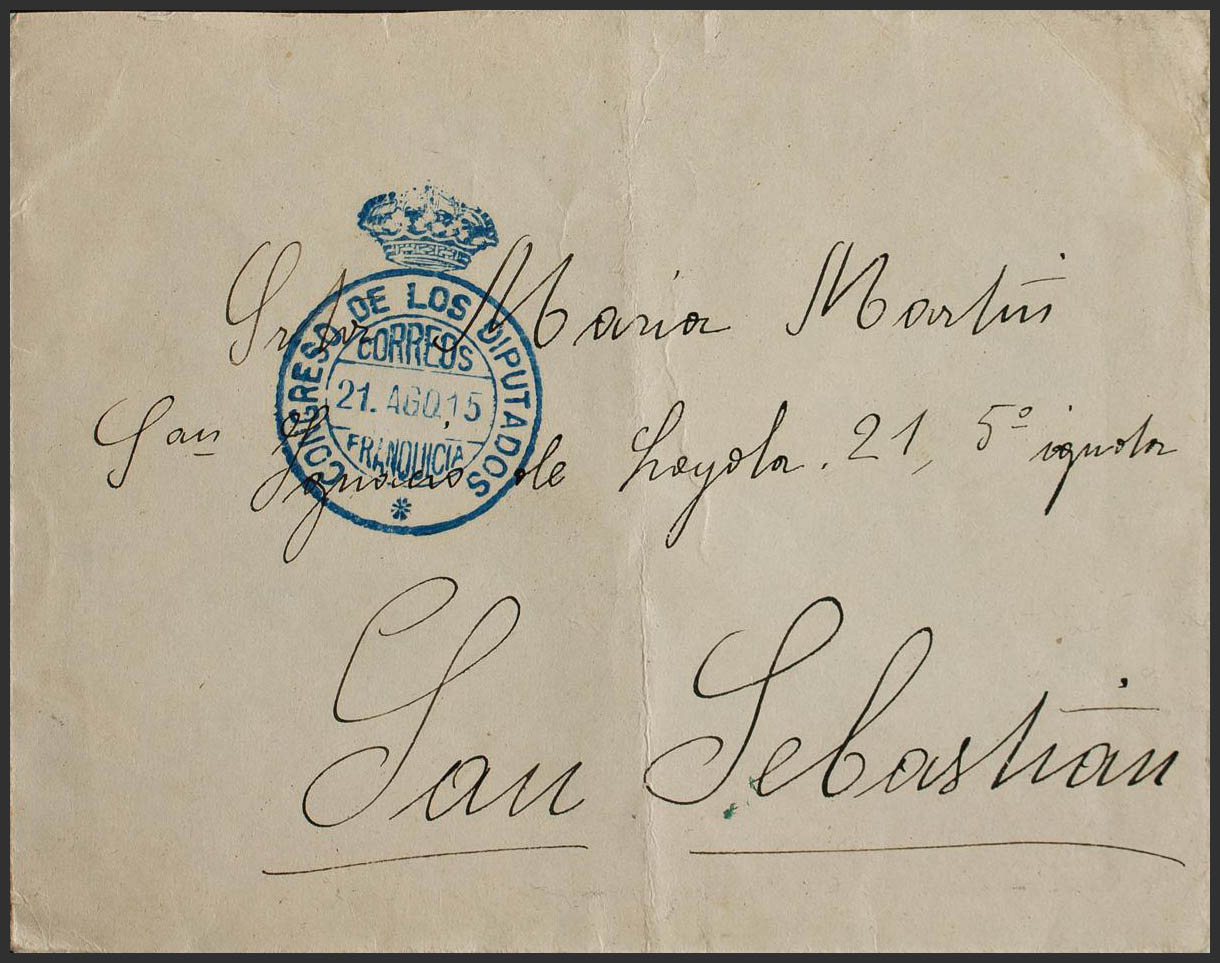 CONGRESO DE LOS DIPUTADOS
CORREOS
21. AGO. 15
FRANQUICIA
Srta María Martín
San Ignacio de Loyola. 21, 5º izquda
San Sebastián